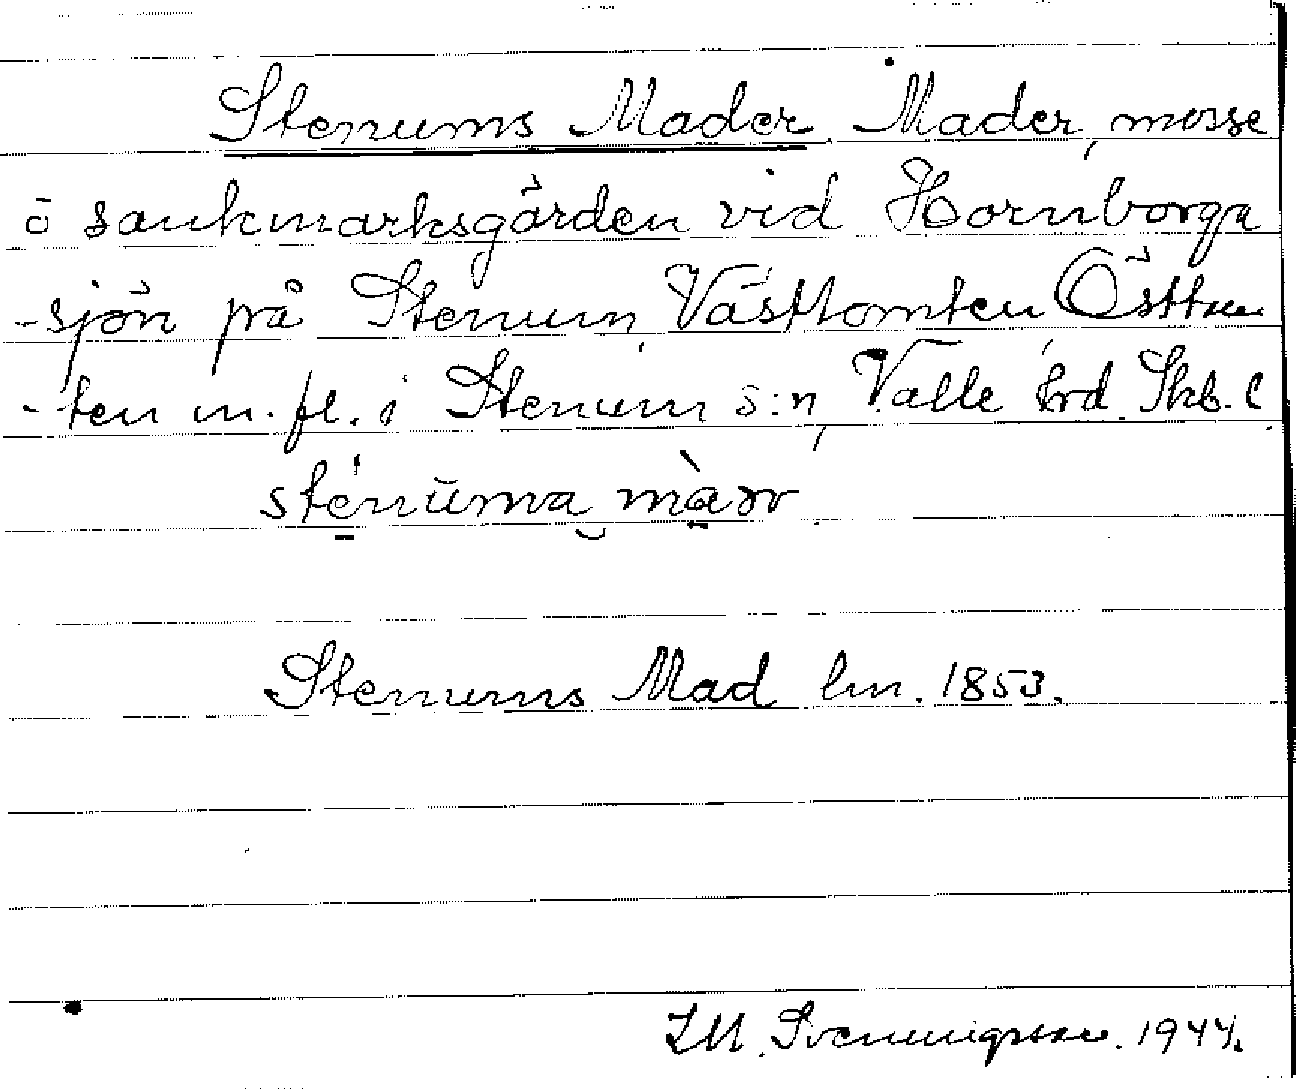 Stenums Mader. Mader, mosse
o sankmarksgärden vid Hornborga
-sjön på Stenum, Västtomten, Östtom
-ten m.fl. i Stenum s:n, Valle hrd. Skb. l.
sténuma màdr
Stenums Mad lm. 1853.
Svenningsson. 1944.